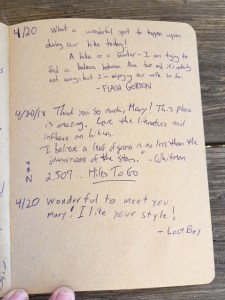 4/20 What a wonderful spot to happen upon
during our hike today!
A hike or a saunter - I am trying to
find a balance between the two and it's actually
not easy; but I'm enjoying our walk so far.
- FLASH GORDON
4/20/18 Thank you so much, Mary! This place
is amazing. Love the literature and
influence on hikers.
"I believe a leaf of grass is no less than the
journeywork of the stars." - Whitman
N 2,507... Miles To Go
4/20 Wonderful to meet you
Mary! I like your style!
- Lost Boy